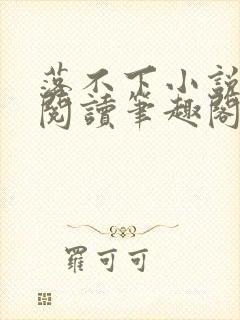 落不下小說
閱讀筆趣閣
羅可可